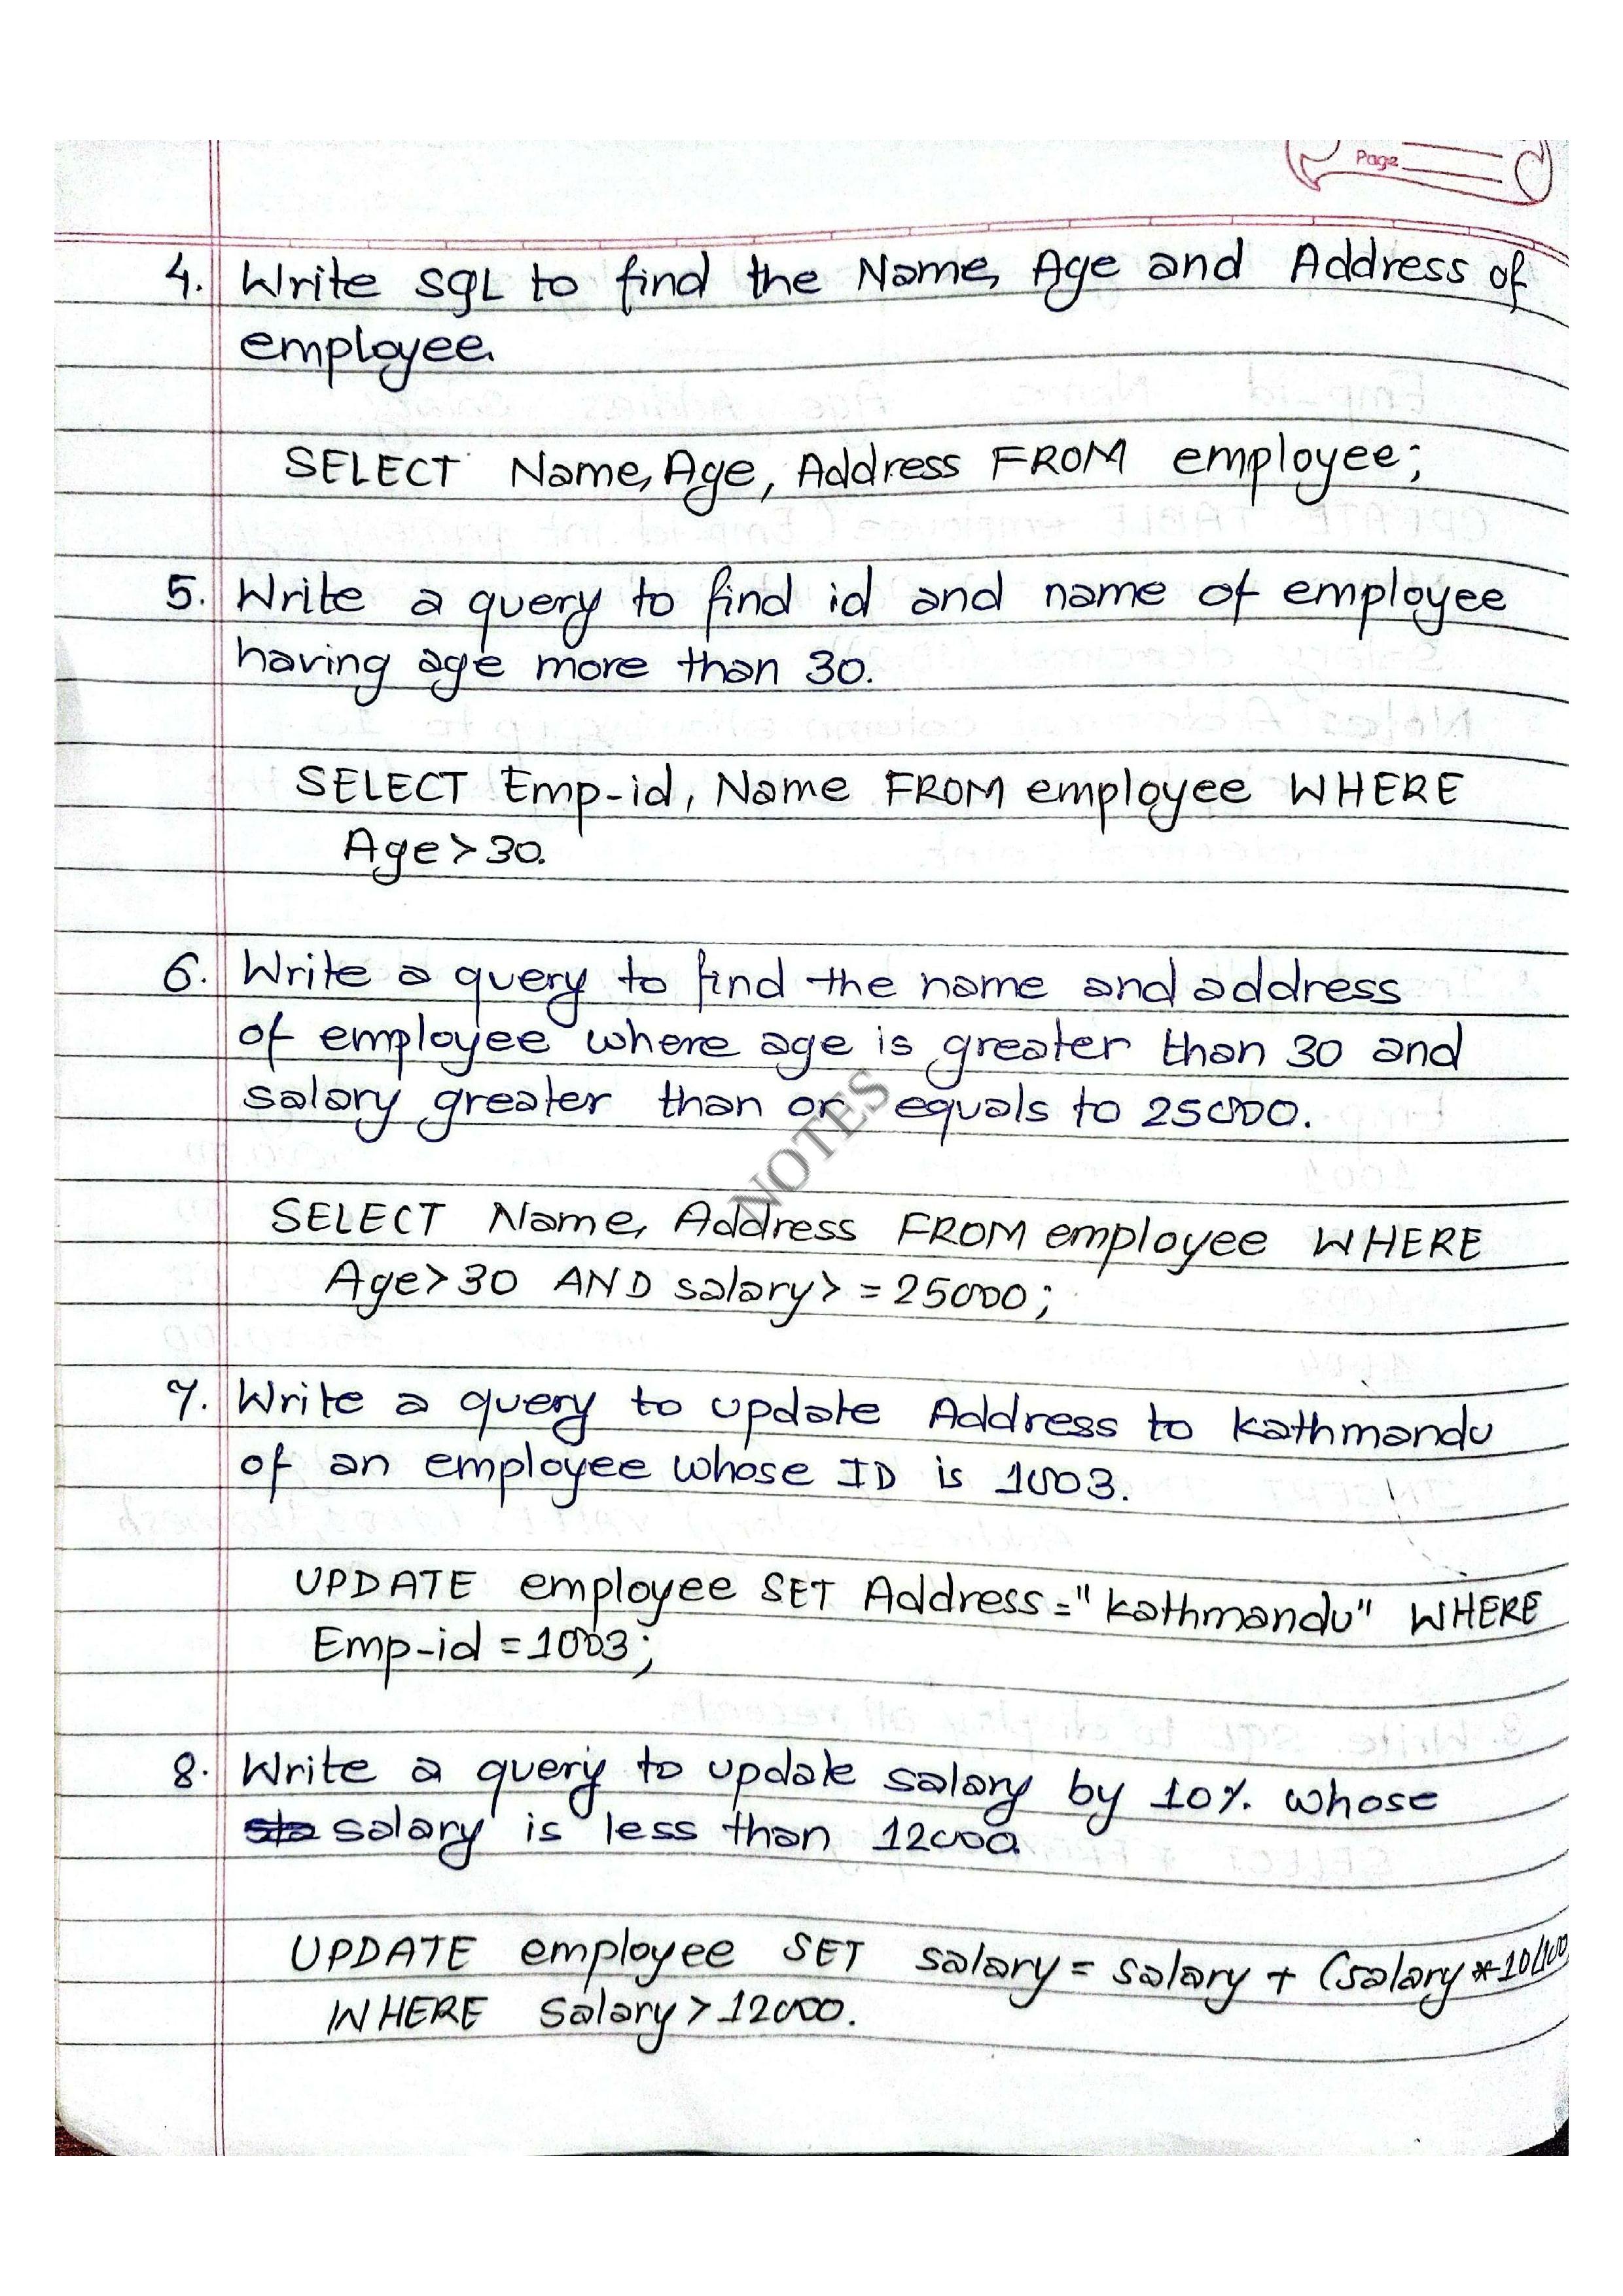 Page
4. Write SQL to find the Name, Age and Address of
employee.
SELECT Name, Age, Address FROM employee;
5. Write a query to find id and name of employee
having age more than 30.
SELECT Emp-id, Name FROM employee WHERE
Age>30.
6. Write a query to find the name and address
of employee where age is greater than 30 and
salary greater than or equals to 25000.
NOTES
SELECT Name, Address FROM employee WHERE
Age>30 AND salary>=25000;
7. Write a query to update Address to Kathmandu
of an employee whose ID is 1003.
UPDATE employee SET Address="Kathmandu" WHERE
Emp-id=1003;
8. Write a query to update salary by 10% whose
salary is less than 12000.
UPDATE employee SET salary = salary + (salary*10/100
WHERE Salary>12000.